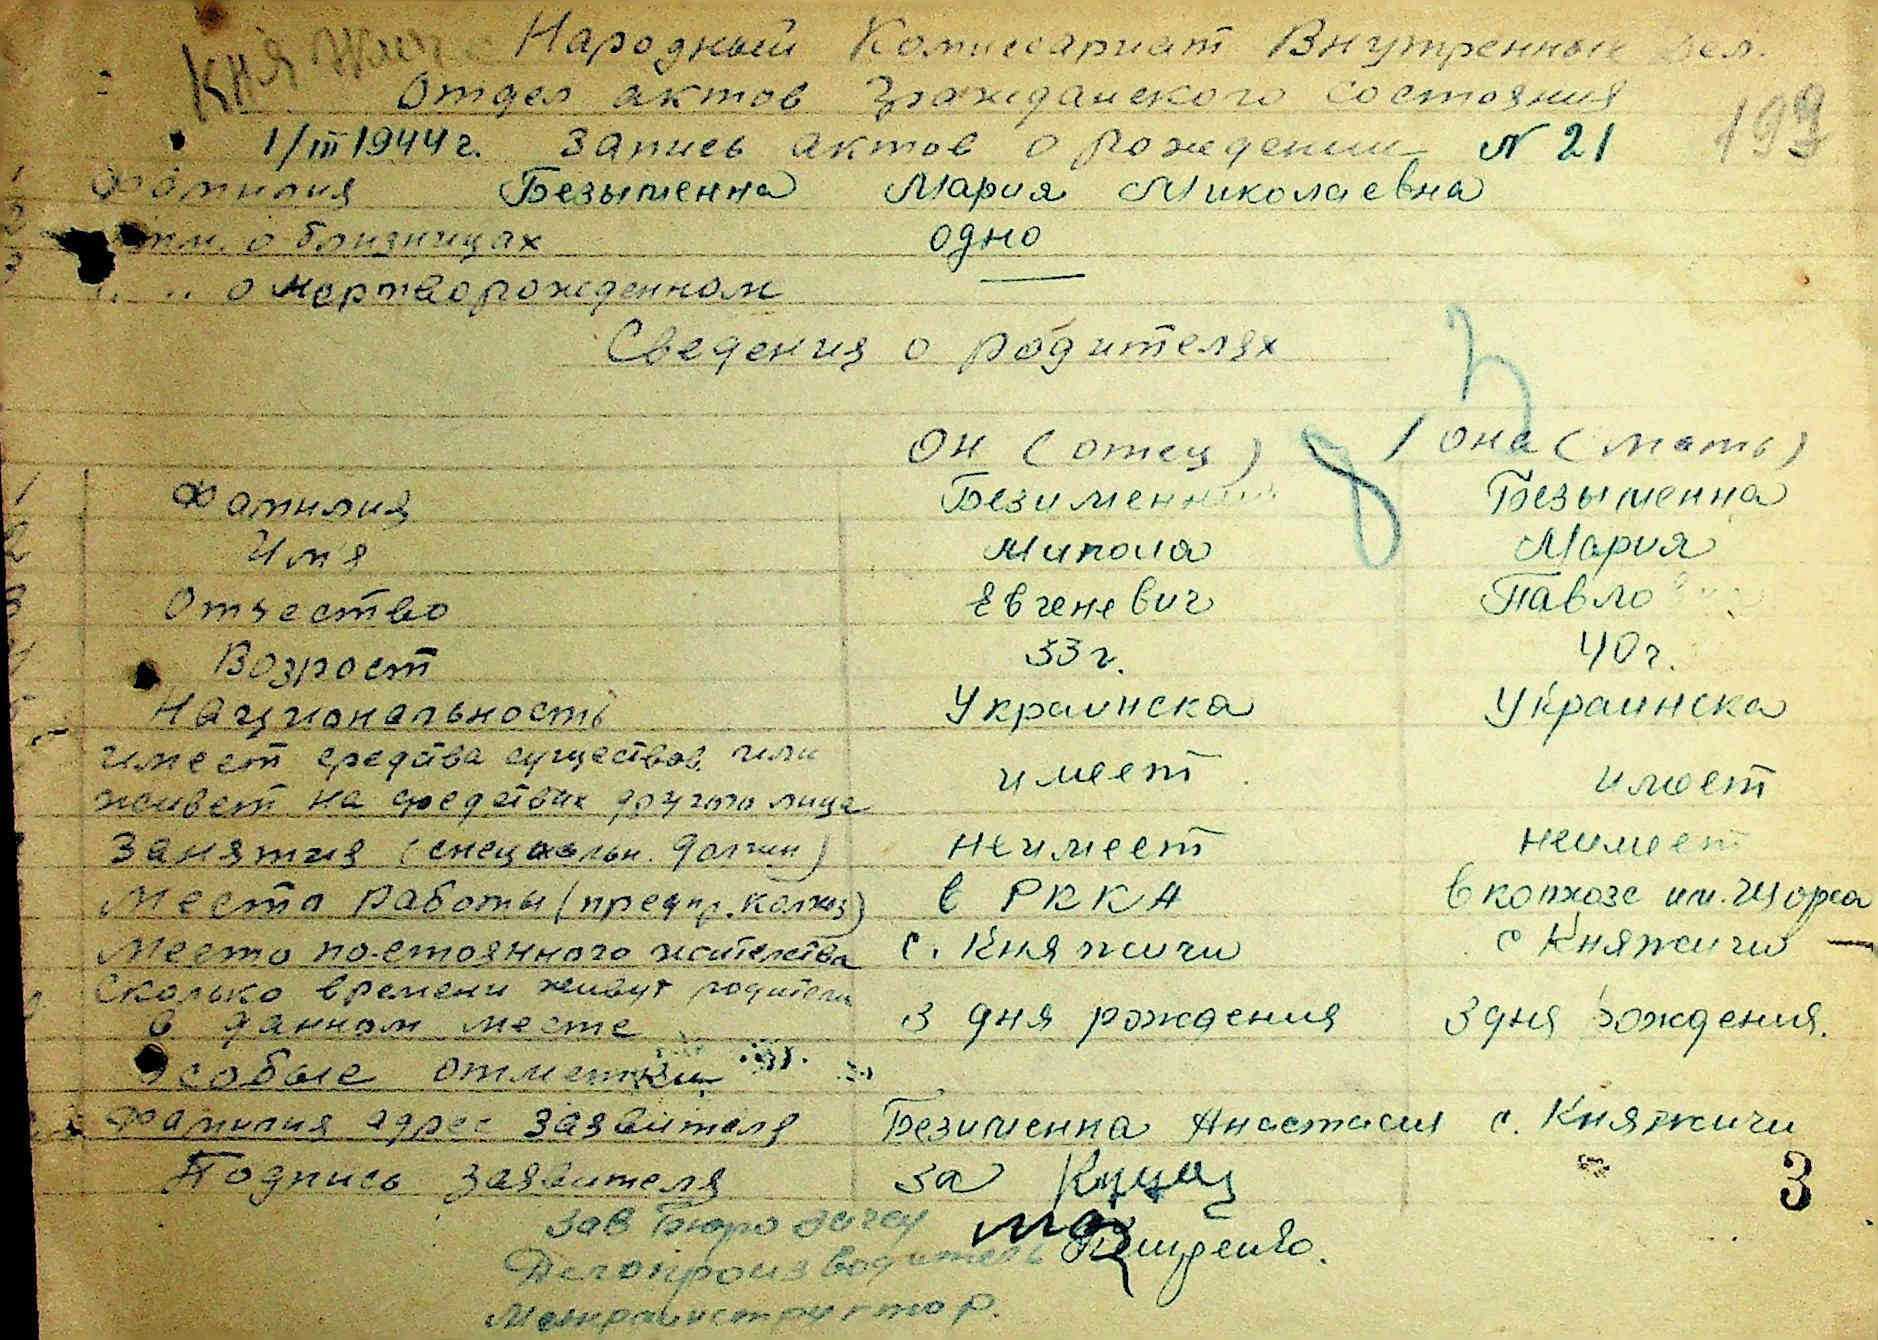 Княжичи
Народный Комиссариат Внутренных Дел.
Отдел актов Гражданского состояния
199
1/III 1944 г. Запись актов о рождении N 21
Фамилия Безыменна Мария Миколаевна
отм. о близницах одно
" " о мертворожденном —
Сведения о родителях
Он (отец) Она (мать)
1 Фамилия Безименний Безыменна
2 Имя Микола Мария
3 Отчество Евгеневич Павло
4 Возрост 33 г. 40 г.
5 Национальность Украинска Украинска
имеет средства существов. или
живет на средствах другого лица имеет имеет
Занятия (специальн. должн) неимеет неимеет
Место работы (предпр. колхоз) в РККА в колхозе им. Щорса
Место постоянного жительства с. Княжичи с Княжичи
Сколько времени живут родители
в данном месте З дня рождения З дня рождения.
Особые отметки
Фамилия адрес заявителя Безименна Анастасия с. Княжичи
Подпись заявителя за
3
Зав Бюро загсу
Делопроизводитель